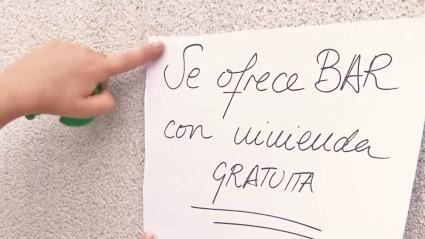 Se ofrece BAR
con vivienda
GRATUITA